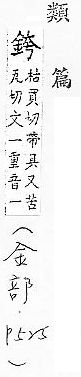 類篇
銙
枯買切帶具又苦
瓦切文一重音一
(金部.P525)